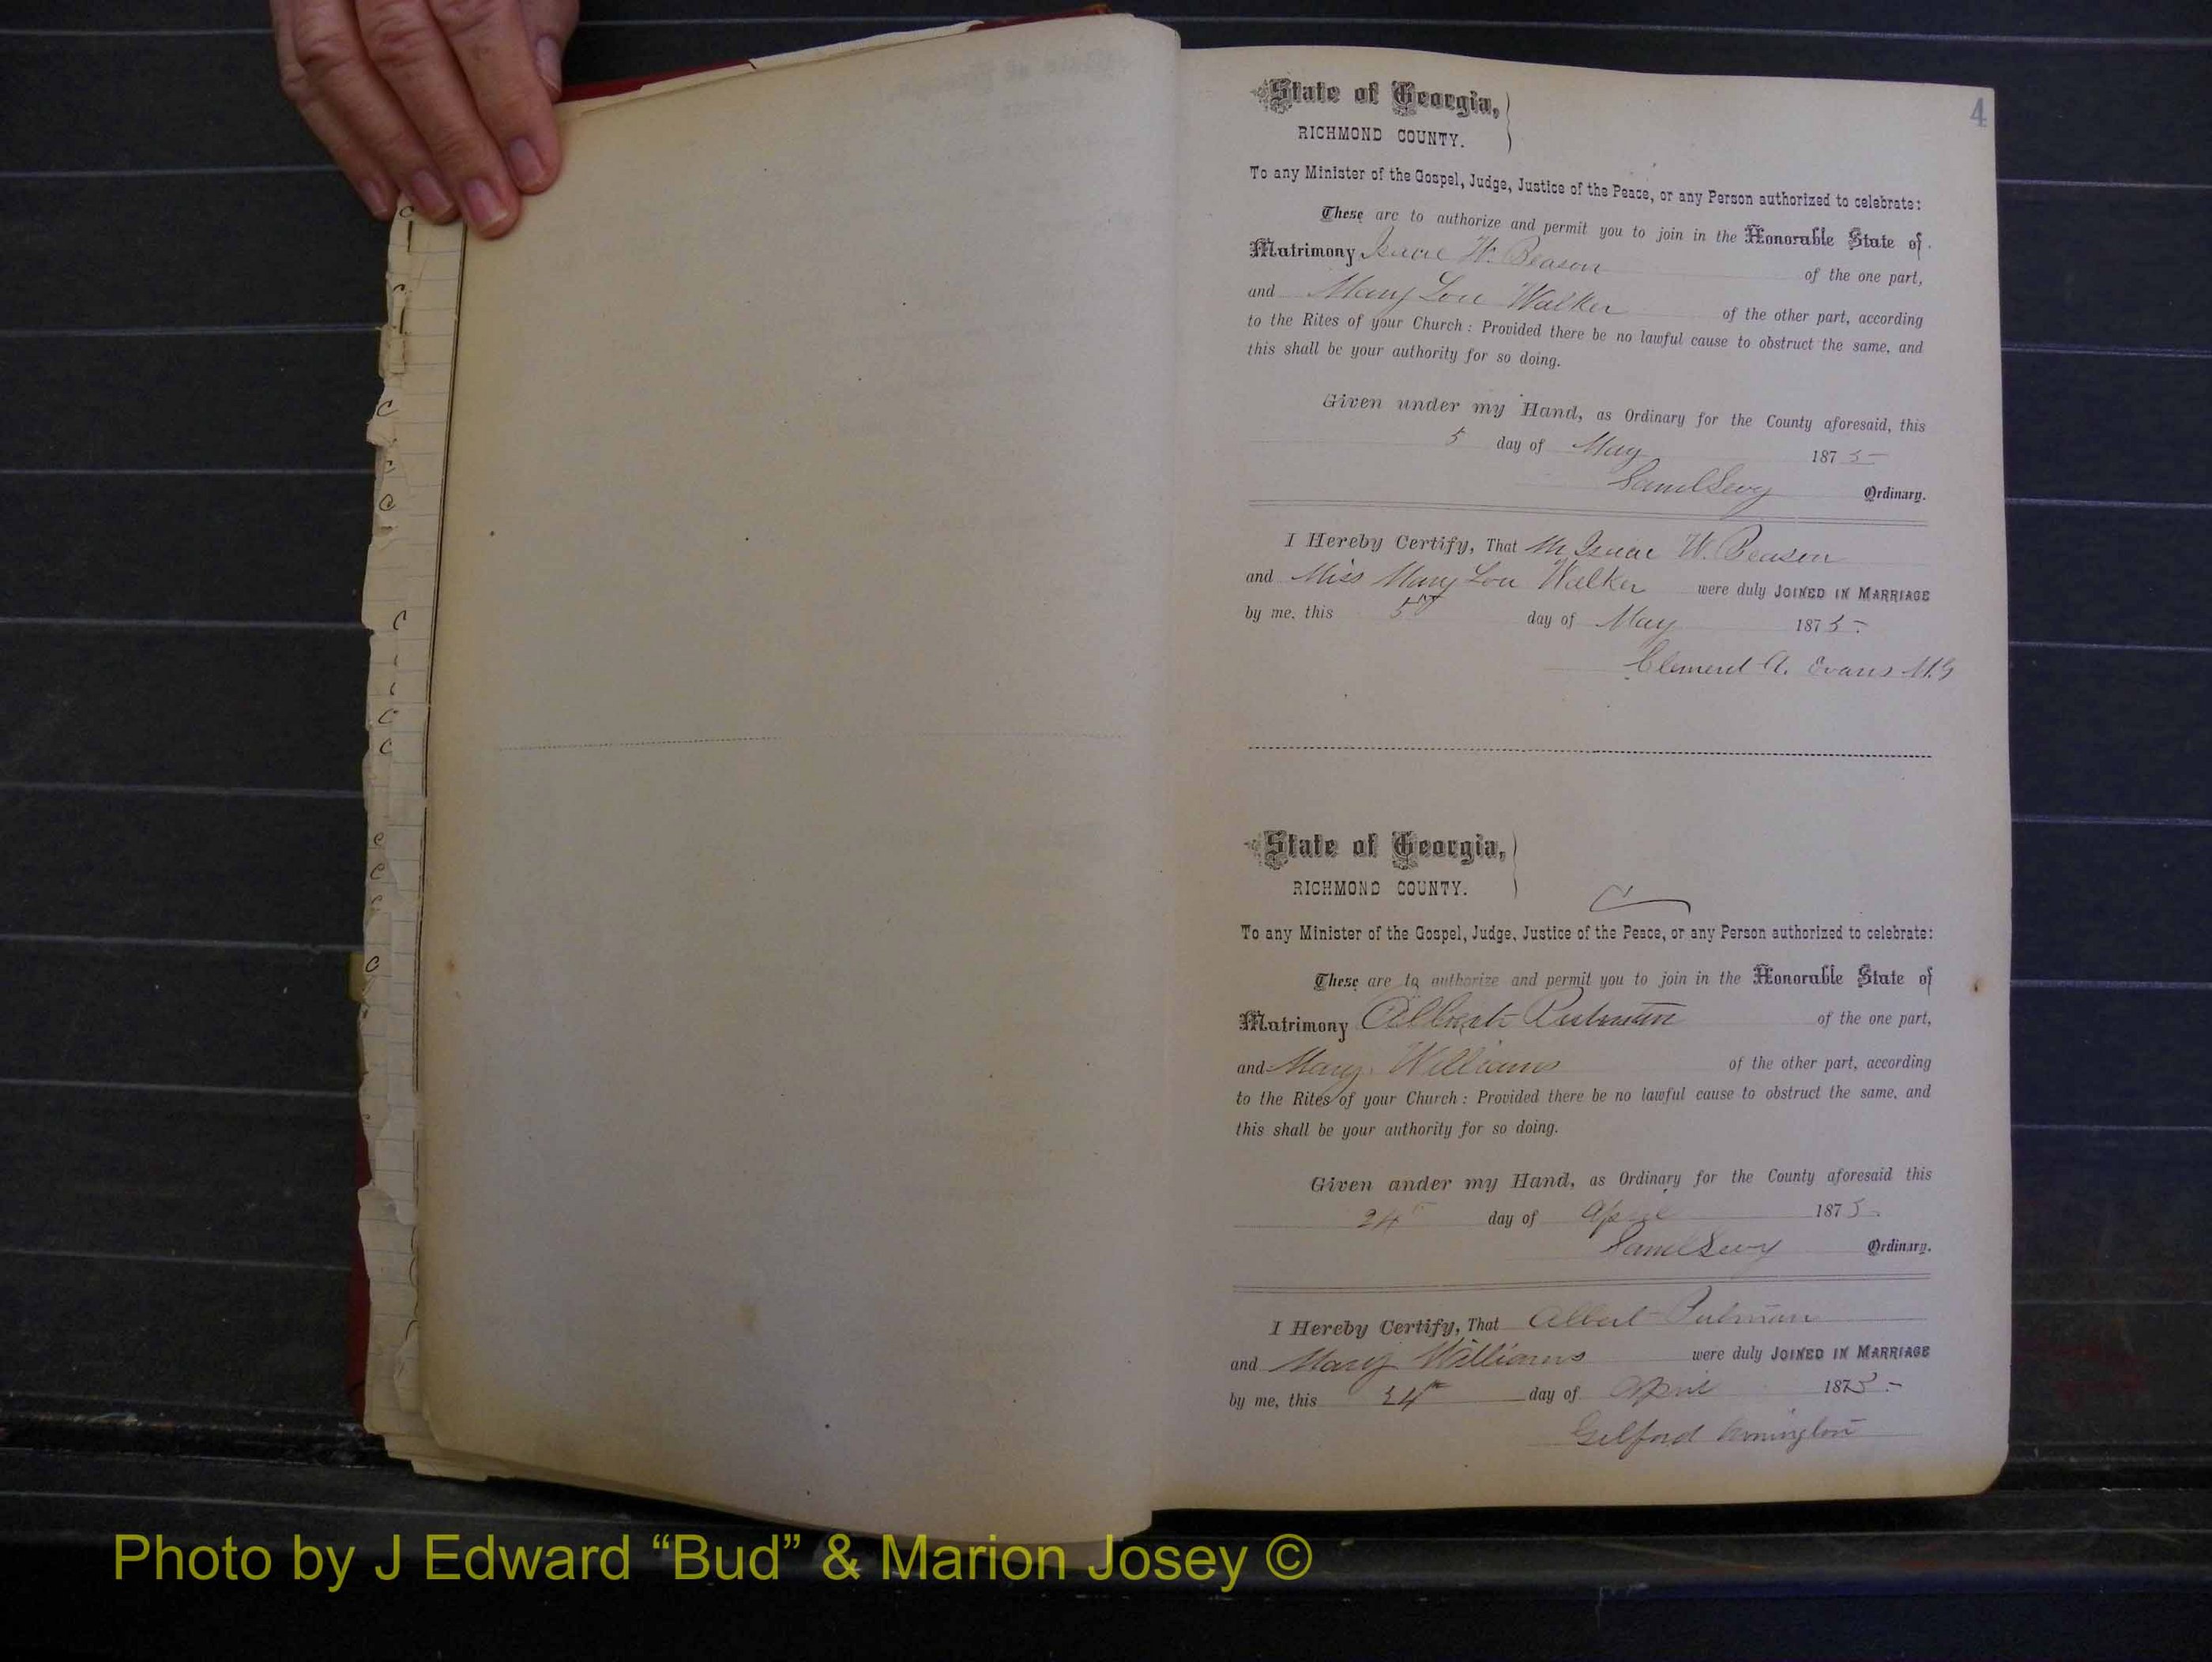 4
State of Georgia,
RICHMOND COUNTY.
To any Minister of the Gospel, Judge, Justice of the Peace, or any Person authorized to celebrate:
These are to authorize and permit you to join in the Honorable State of
Matrimony Isaac W. Beason of the one part,
and Mary Lou Walker of the other part, according
to the Rites of your Church: Provided there be no lawful cause to obstruct the same, and
this shall be your authority for so doing.
Given under my Hand, as Ordinary for the County aforesaid, this
5 day of May 1875
Saml Levy Ordinary.
I Hereby Certify, That Mr Isaac W. Beason
and Miss Mary Lou Walker were duly JOINED IN MARRIAGE
by me, this 5th day of May 1875
Clement A. Evans M.G
State of Georgia,
RICHMOND COUNTY.
C
To any Minister of the Gospel, Judge, Justice of the Peace, or any Person authorized to celebrate:
These are to authorize and permit you to join in the Honorable State of
Matrimony Albert of the one part,
and Mary Williams of the other part, according
to the Rites of your Church: Provided there be no lawful cause to obstruct the same, and
this shall be your authority for so doing.
Given under my Hand, as Ordinary for the County aforesaid this
24th day of April 1875
Saml Levy Ordinary.
I Hereby Certify, That Albert
and Mary Williams were duly JOINED IN MARRIAGE
by me, this 24th day of April 1875
Gilford
Photo by J Edward “Bud” & Marion Josey ©